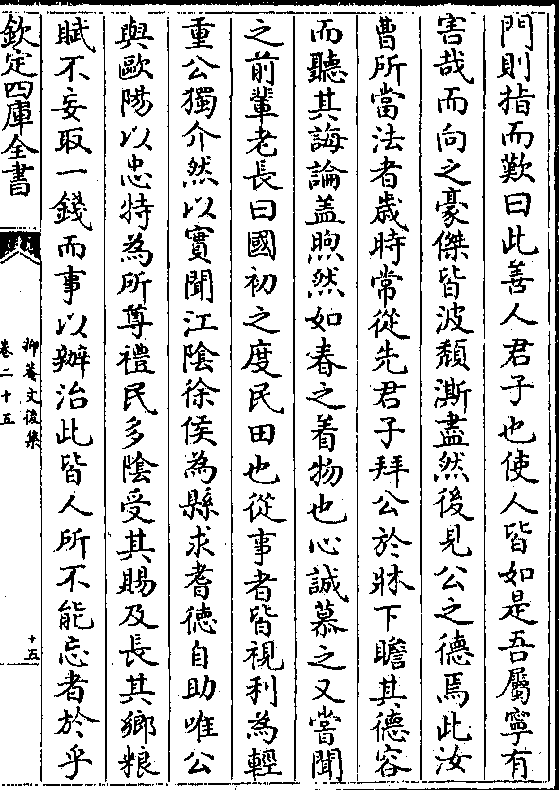 門則指而歎曰此善人君子也使人皆如是吾屬寧有
害哉而向之豪傑皆波頽澌盡然後見公之德焉此汝
曹所當法者歲時常從先君子拜公於牀下瞻其德容
而聽其誨論盖煦然如春之着物也心誠慕之又嘗聞
之前輩老長曰國初之度民田也從事者皆視利為輕
重公獨介然以實聞江陰徐侯為縣求耆德自助唯公
與歐陽以忠特為所尊禮民多陰受其賜及長其鄉粮
賦不妄取一錢而事以辦治此皆人所不能忘者於乎
欽定四庫全書
抑菴文後集
卷二十五
十五